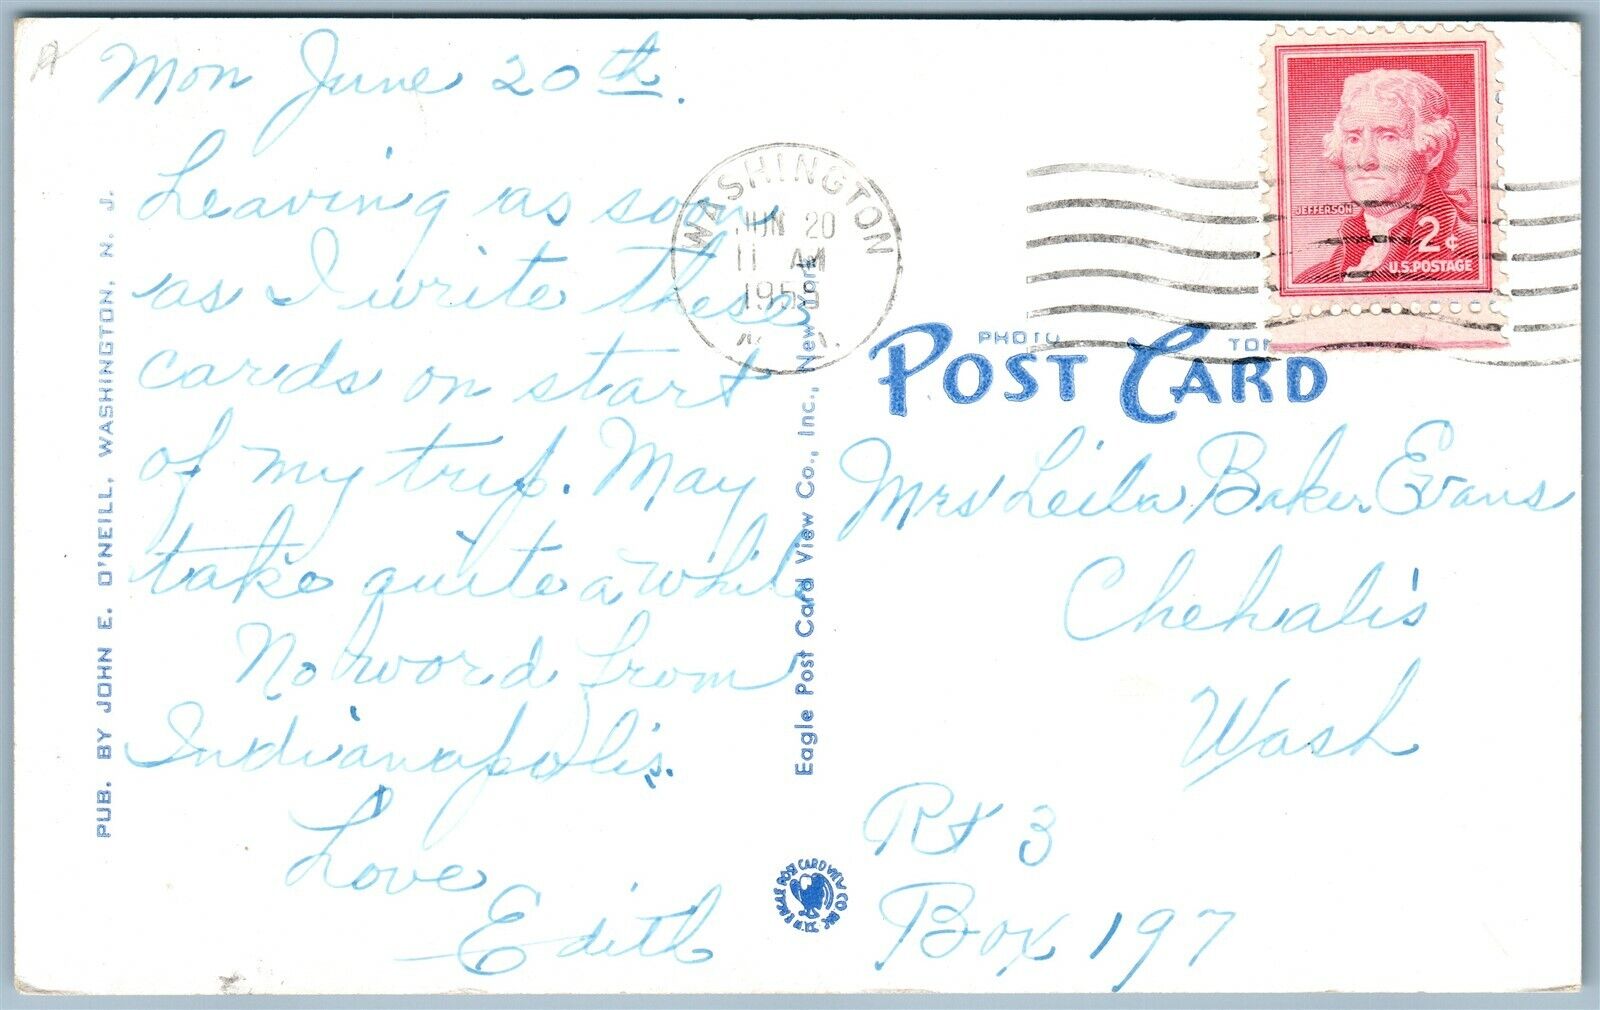 Mon June 20th.
Leaving as soon
as I write these
cards on start
of my trip. May
take quite a while
No word from
Indianapolis.
Love
Edith
PUB. BY JOHN E. O'NEILL, WASHINGTON, N. J.
Eagle Post Card View Co., Inc., New York
WASHINGTON
JUN 20
11 AM
JEFFERSON
2¢
U.S. POSTAGE
PHOTO
POST CARD
Mrs Leila Baker Evans
Chehalis
Wash
Rt 3
Box 197